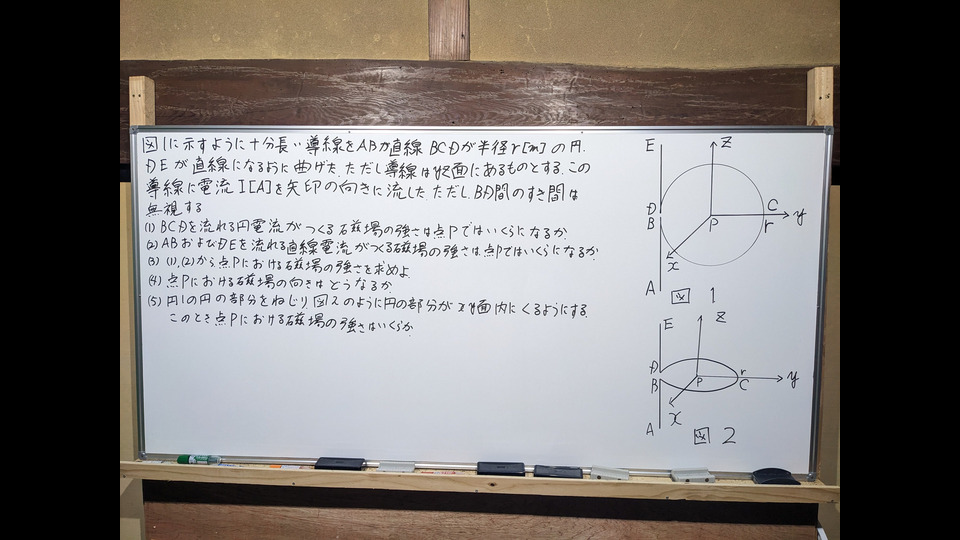 図1に示すように十分長い導線をABが直線 BCDが半径r[m]の円.
DEが直線になるように曲げた.ただし導線はyz面にあるものとする.この
導線に電流I[A]を矢印の向きに流した.ただし.BD間のすき間は
無視する
(1) BCDを流れる円電流がつくる磁場の強さは点Pではいくらになるか
(2) ABおよびDEを流れる直線電流がつくる磁場の強さは点Pではいくらになるか
(3) (1),(2)から点Pにおける磁場の強さを求めよ
(4) 点Pにおける磁場の向きはどうなるか
(5) 円1の円の部分をねじり図2のように円の部分がxy面内にくるようにする.
このとき点Pにおける磁場の強さはいくらか
E
z
D
B
C
P
r
y
x
A
図 1
E
z
D
B
P
r
C
y
x
A
図 2